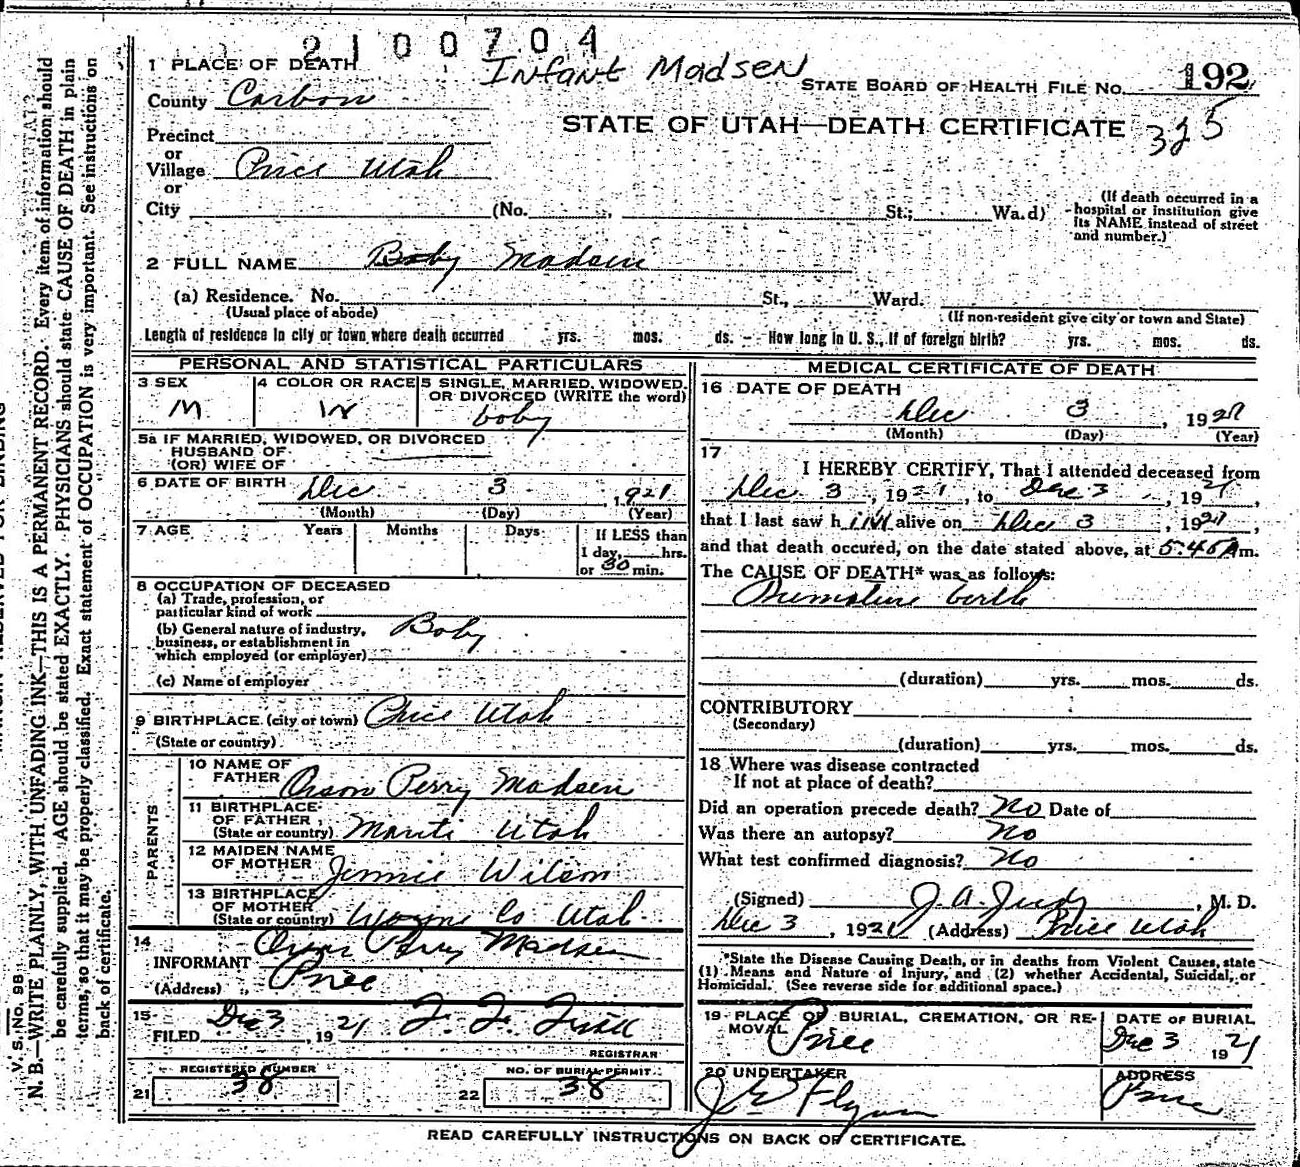 2100704
Infant Madsen
1 PLACE OF DEATH
STATE BOARD OF HEALTH FILE No. 192
County Carbon
STATE OF UTAH—DEATH CERTIFICATE 325
Precinct
or
Village Price Utah
or
City (No. , St.; Wa.d)
(If death occurred in a hospital or institution give its NAME instead of street and number.)
2 FULL NAME Baby Madsen
(a) Residence. No. St., Ward.
(Usual place of abode) (If non-resident give city or town and State)
Length of residence in city or town where death occurred yrs. mos. ds. - How long in U. S., if of foreign birth? yrs. mos. ds.
PERSONAL AND STATISTICAL PARTICULARS
3 SEX M
4 COLOR OR RACE W
5 SINGLE, MARRIED, WIDOWED, OR DIVORCED (WRITE the word) baby
5a IF MARRIED, WIDOWED, OR DIVORCED
HUSBAND OF
(OR) WIFE OF
6 DATE OF BIRTH Dec 3, 1921
(Month) (Day) (Year)
7 AGE Years Months Days If LESS than
1 day, hrs.
or 30 min.
8 OCCUPATION OF DECEASED
(a) Trade, profession, or
particular kind of work
(b) General nature of industry,
business, or establishment in
which employed (or employer) Baby
(c) Name of employer
9 BIRTHPLACE (city or town) Price Utah
(State or country)
PARENTS
10 NAME OF FATHER Orson Perry Madsen
11 BIRTHPLACE OF FATHER
(State or country) Manti Utah
12 MAIDEN NAME OF MOTHER Jennie Wilson
13 BIRTHPLACE OF MOTHER
(State or country) Wayne Co Utah
14
INFORMANT Orson Perry Madsen
(Address) Price
15
FILED Dec 3, 1921 F. F.
REGISTRAR
REGISTERED NUMBER
21 38
NO. OF BURIAL PERMIT
22 38
MEDICAL CERTIFICATE OF DEATH
16 DATE OF DEATH
Dec 3, 1921
(Month) (Day) (Year)
17
I HEREBY CERTIFY, That I attended deceased from
Dec 3, 1921, to Dec 3, 1921,
that I last saw him alive on Dec 3, 1921,
and that death occured, on the date stated above, at 5:45 Am.
The CAUSE OF DEATH* was as follows:
Premature birth
(duration) yrs. mos. ds.
CONTRIBUTORY
(Secondary)
(duration) yrs. mos. ds.
18 Where was disease contracted
If not at place of death?
Did an operation precede death? No Date of
Was there an autopsy? No
What test confirmed diagnosis? No
(Signed) J. A. Judy, M. D.
Dec 3, 1921 (Address) Price Utah
*State the Disease Causing Death, or in deaths from Violent Causes, state
(1) Means and Nature of Injury, and (2) whether Accidental, Suicidal, or
Homicidal. (See reverse side for additional space.)
19 PLACE OF BURIAL, CREMATION, OR REMOVAL Price
DATE OF BURIAL
Dec 3 1921
20 UNDERTAKER
J E Flynn
ADDRESS
Price
READ CAREFULLY INSTRUCTIONS ON BACK OF CERTIFICATE.
V. S. No. 9B
N. B.—WRITE PLAINLY, WITH UNFADING INK—THIS IS A PERMANENT RECORD. Every item of information should
be carefully supplied. AGE should be stated EXACTLY. PHYSICIANS should state CAUSE OF DEATH in plain
terms, so that it may be properly classified. Exact statement of OCCUPATION is very important. See instructions on
back of certificate.